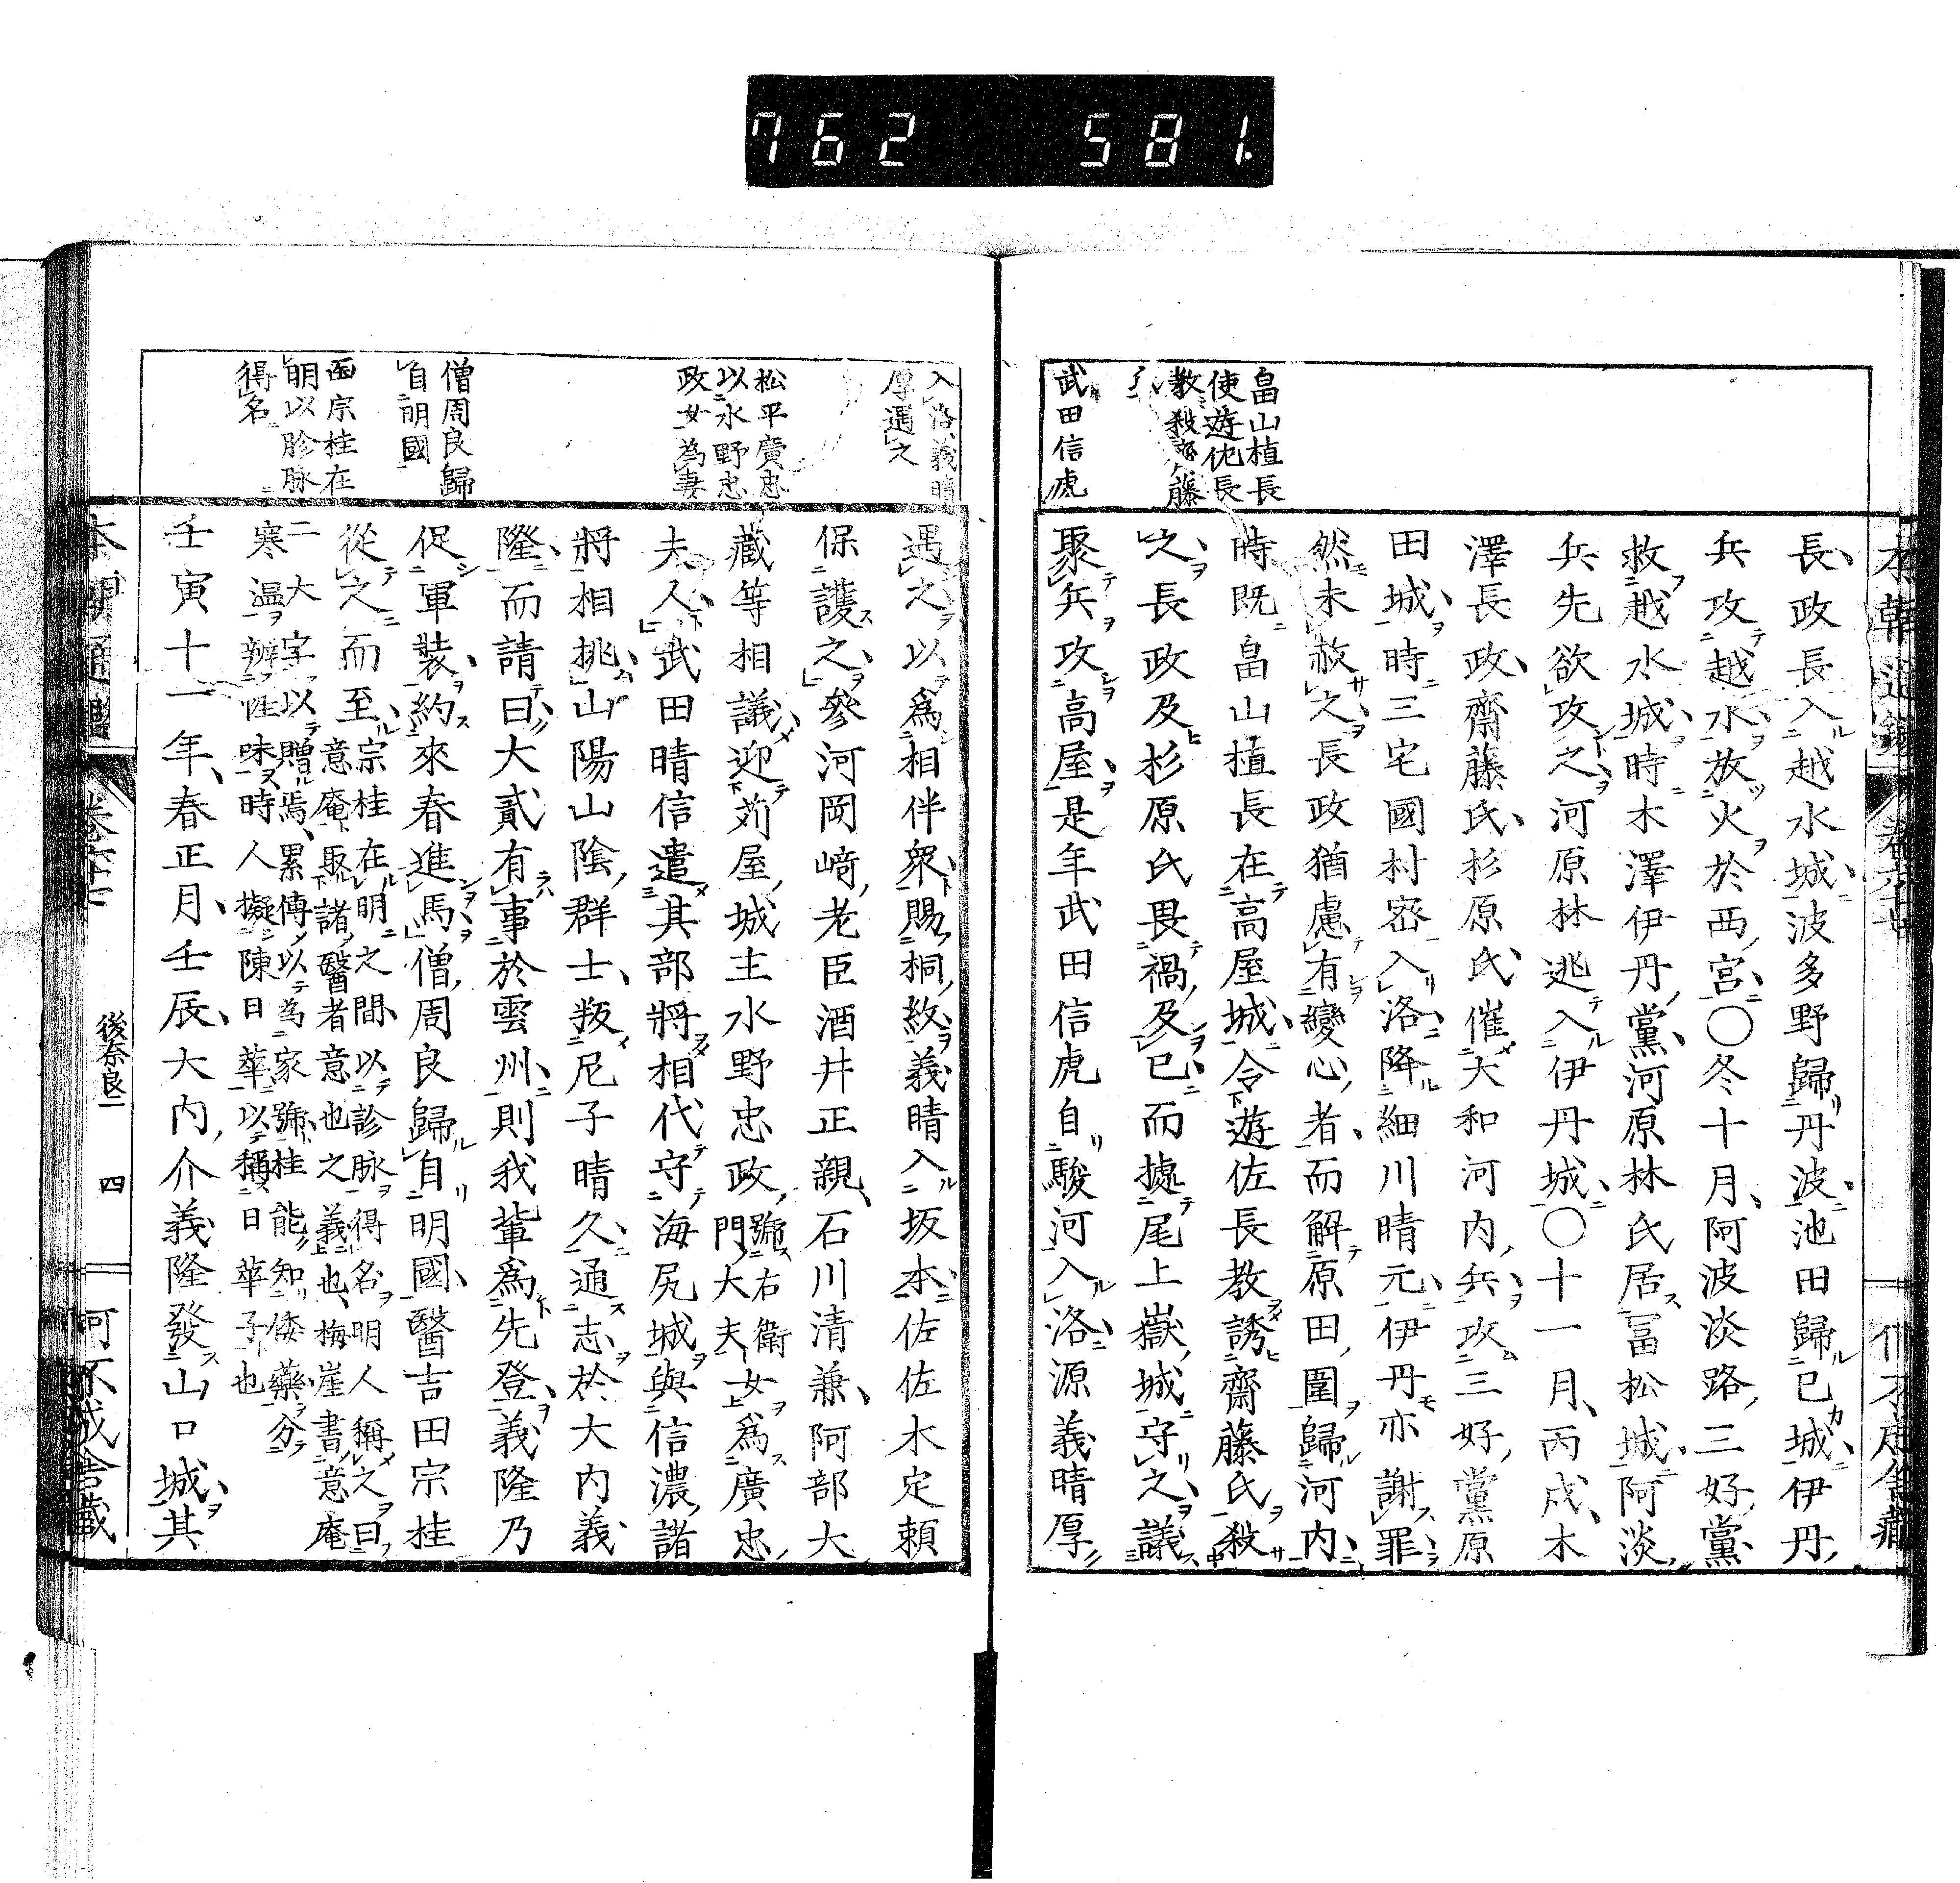 762 581
畠山植長
使遊佐長
教殺斎藤
武田信虎
長政長入越水城波多野歸丹波池田歸已城伊丹
兵攻越水放火於西宮〇冬十月阿波淡路三好黨
救越水城時木澤伊丹黨河原林氏居冨松城阿淡
兵先欲攻之河原林逃入伊丹城〇十一月丙戌木
澤長政齋藤氏杉原氏催大和河内兵攻三好黨原
田城時三宅國村密入洛降細川晴元伊丹亦謝罪
然未赦之長政猶慮有變心者而解原田圍歸河内
時既畠山植長在高屋城令遊佐長教誘齋藤氏殺
之長政及杉原氏畏禍及已而據尾上嶽城守之議
聚兵攻高屋是年武田信虎自駿河入洛源義晴厚
入洛義晴
厚遇之
松平廣忠
以水野忠
政女為妻
僧周良歸
自明國
醫宗桂在
明以診脉
得名
遇之以爲相伴衆賜桐紋義晴入坂本佐佐木定頼
保護之參河岡﨑老臣酒井正親石川清兼阿部大
藏等相議迎苅屋城主水野忠政號右衛門大夫女爲廣忠
夫人武田晴信遣其部將相代守海尻城與信濃諸
將相挑山陽山陰群士叛尼子晴久通志於大内義
隆而請曰大貳有事於雲州則我輩爲先登義隆乃
促軍裝約來春進馬僧周良歸自明國醫吉田宗桂
從之而至宗桂在明之間以診脉得名明人稱之曰
意庵聚諸醫者意也之義也梅崖書意庵
二大字以贈焉累傳以為家號桂能知倭藥分
寒温辨性味時人擬陳日華以稱日華子也
壬寅十一年春正月壬辰大内介義隆發山口城其
本朝通鑑 卷六十七 後奈良二 四 何不成舍藏